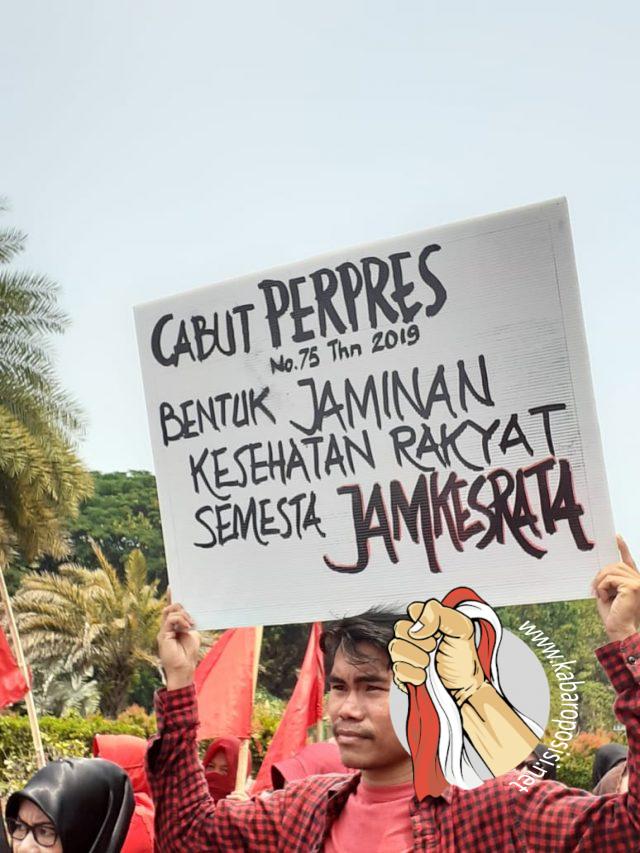 CABUT PERPRES
No.75 Thn 2019
BENTUK JAMINAN
KESEHATAN RAKYAT
SEMESTA JAMKESRATA
www.kabaroposisi.net